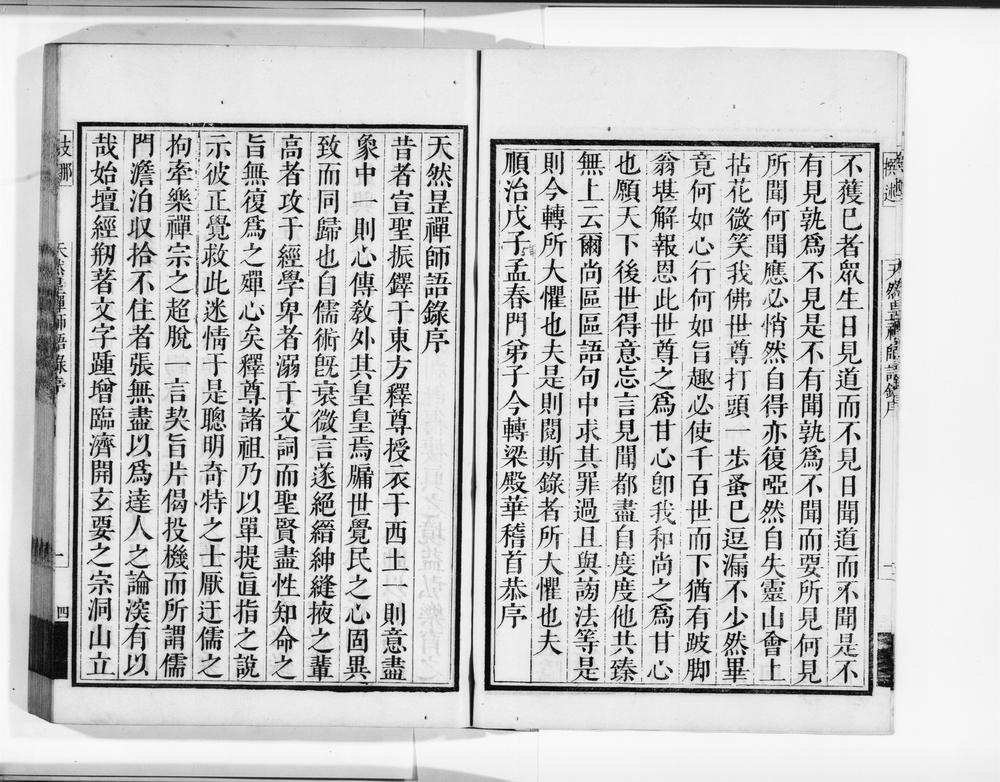 不獲已者眾生日見道而不見日聞道而不聞是不
有見孰爲不見是不有聞孰爲不聞而要所見何見
所聞何聞應必悄然自得亦復啞然自失靈山會上
拈花微笑我佛世尊打頭一步蚤已逗漏不少然畢
竟何如心行何如旨趣必使千百世而下猶有跛脚
翁堪解報恩此世尊之爲甘心卽我和尚之爲甘心
也願天下後世得意忘言見聞都盡自度度他共臻
無上云爾尚區區語句中求其罪過且與謗法等是
則今轉所大懼也夫是則閱斯錄者所大懼也夫
順治戊子孟春門弟子今轉梁殿華稽首恭序
天然昰禪師語錄序
昔者宣聖振鐸于東方釋尊授衣于西土一則意盡
象中一則心傳敎外其皇皇焉牖世覺民之心固異
致而同歸也自儒術旣衰微言遂絕縉紳縫掖之輩
高者攻于經學卑者溺于文詞而聖賢盡性知命之
旨無復爲之殫心矣釋尊諸祖乃以單提直指之說
示彼正覺救此迷情于是聰明奇特之士厭迂儒之
拘牽樂禪宗之超脫一言契旨片偈投機而所謂儒
門澹泊収拾不住者張無盡以爲達人之論湥有以
哉始壇經剏著文字踵增臨濟開玄要之宗洞山立
天然昰禪師語錄序
一
四